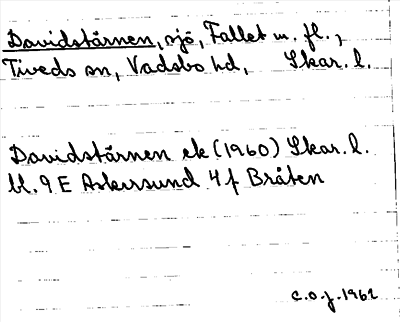 Davidstärnen, sjö, Fallet m. fl.,
Tiveds sn, Vadsbo hd, Skar. l.
Davidstärnen ek (1960) Skar. l.
bl. 9 E Askersund 4 f Bråten
c.o.j. 1962